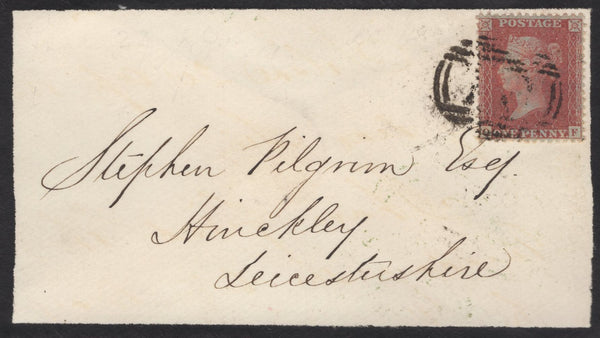 POSTAGE
ONE PENNY
F
Stephen Pilgrim Esq.
Hinckley
Leicestershire